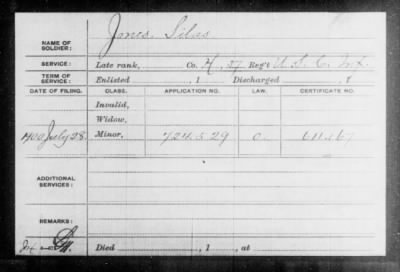 NAME OF SOLDIER: Jones, Silas
SERVICE: Late rank, Co. H, 27 Reg't U. S. C. Inf.
TERM OF SERVICE: Enlisted , 1 Discharged , 1
DATE OF FILING. CLASS. APPLICATION NO. LAW. CERTIFICATE NO.
Invalid,
Widow,
1900 July 28. Minor, 724529 O. 611167
ADDITIONAL SERVICES:
REMARKS:
Died , 1 , at